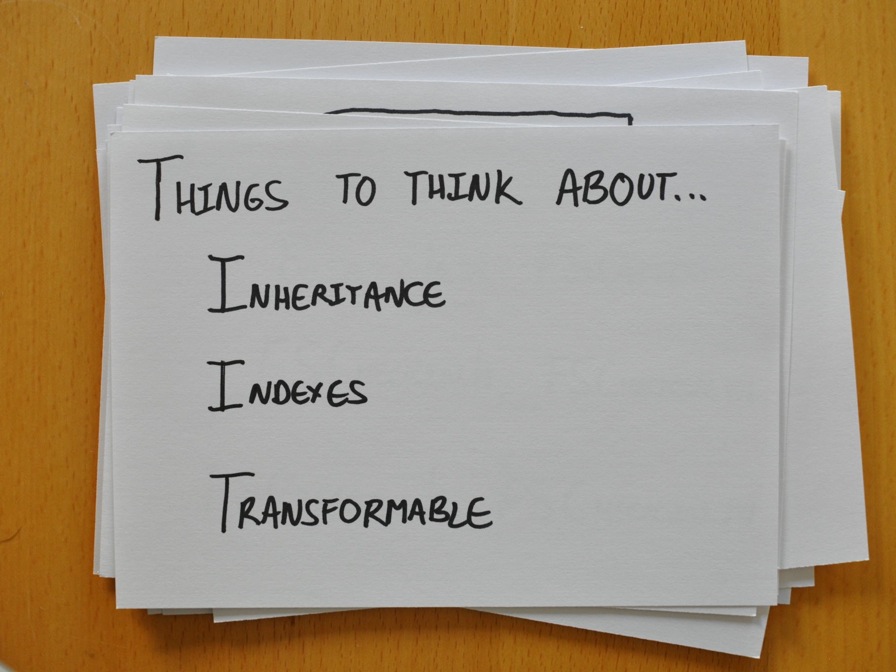 THINGS TO THINK ABOUT...
INHERITANCE
INDEXES
TRANSFORMABLE